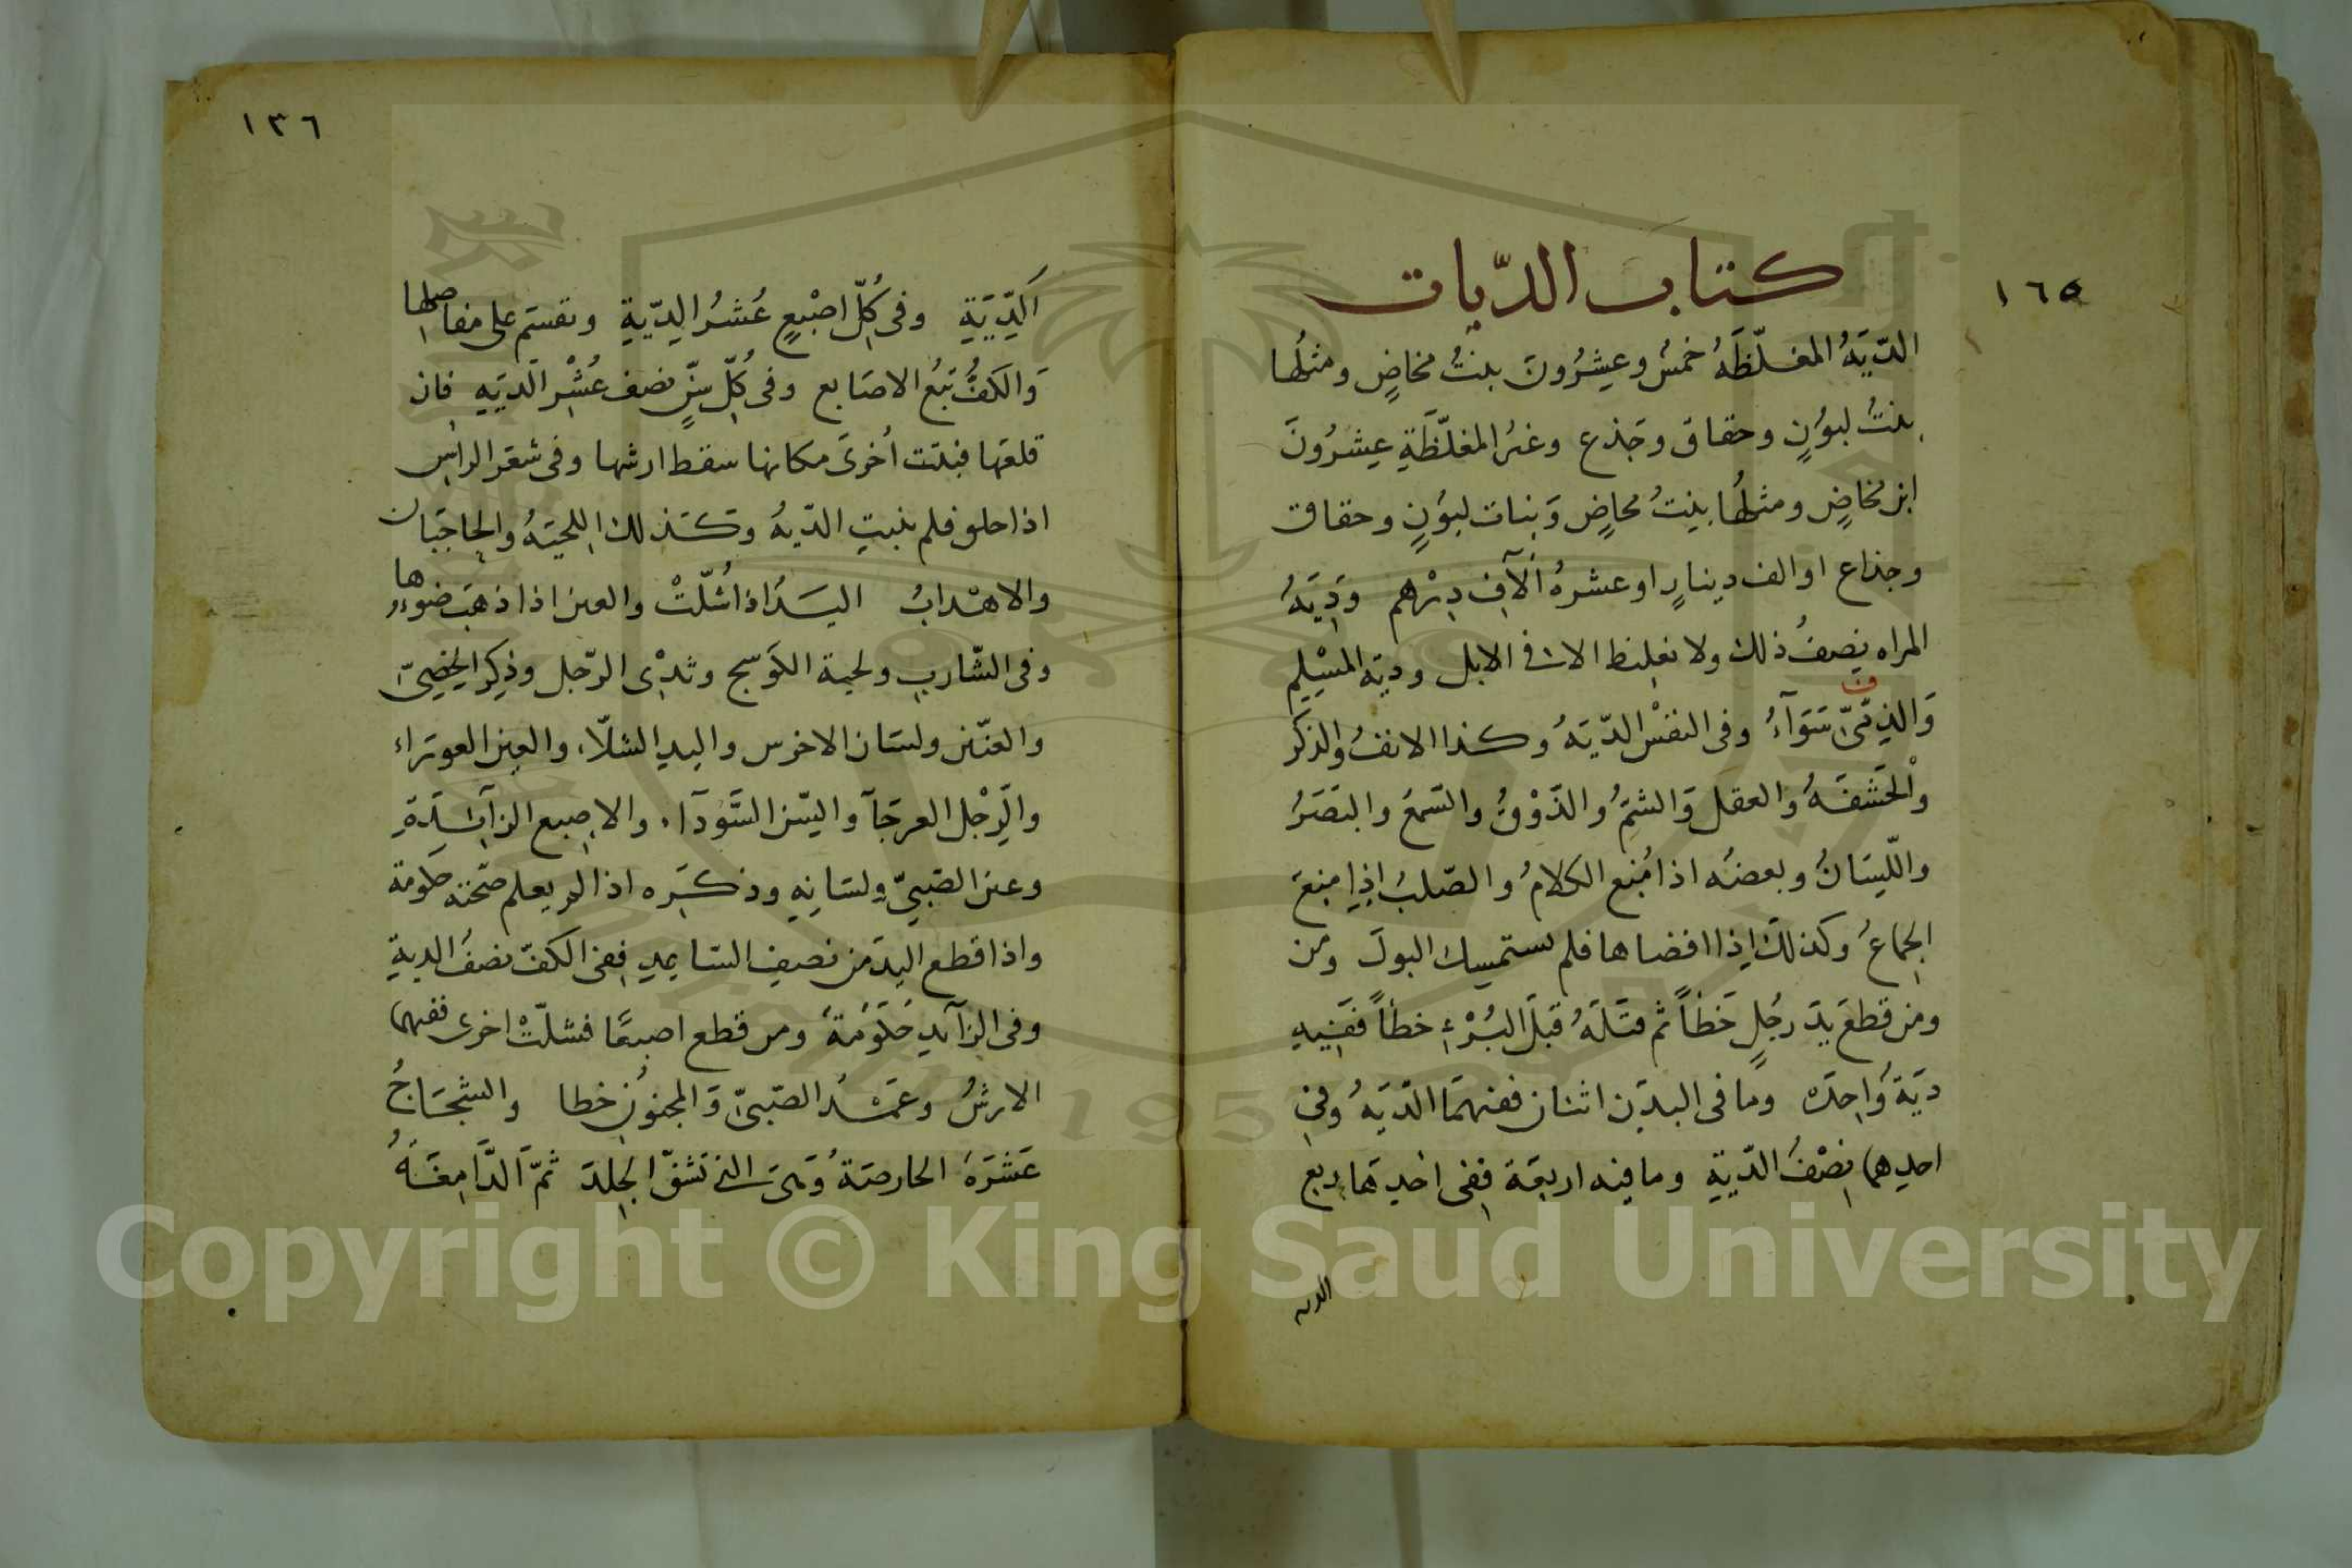 ١٦٥
كتاب الديات
الدّيَةُ المغلّظَةُ خمسُ وعِشرُونَ بنتُ مخاضٍ ومثلُها
بنتُ لبوُنٍ وحقاق وجَذع وغيرُ المغلّظَةِ عِشرُونَ
ابن مخاضٍ ومثلُها بِنتُ مخاضٍ وَبنات لبوُنٍ وحقاق
وجذاع او الف دينارٍ او عشرةُ اَلآفِ دِرْهم وَدِيَةُ
المراه نِصفُ ذلك ولا تغلِيظ الا في الابل وديَة المسْلِمِ
وَالذِمّىّ سَوَآءُ وفى النفسْ الدّيَةُ وكذا الانفُ والذكَر
وْالحَشفَةُ والعقل وَالشمَُ والذَوْقُ والسّمعُ والبَصَرُ
واللّيسَانُ وبعضُه اذا مُنع الكلامُ والصّلبُ اِذا مِنعَ
الجماعُ وكذلكَ اِذا افضاها فلم يستمسِك البولَ ومن
ومن قطعَ يَدَ رجُلٍ خَطأً ثم قتَلَهُ قبلَ البُرْءِ خطأً ففِيهِ
ديَة وَاحِدَه ومَا فى البدَن اثنان ففِيهَما الدّيَةُ وفى
احدِيهما نِصْفُ الدّيةِ وما فيه اربعَة ففِى احدِيَها ربع
الديه
١٣٦
اَلدِّيَةِ وفى كُلّ اصْبعٍ عُشرُ الدِيّةِ وتقسَم على مفاصِلها
وَالكَفُّ تبَعُ الاصَابع وفى كُلّ سِنٍّ نصف عُشْرِ الدّيَةِ فان
قلعَها فنبَتت اُخرىَ مكانها سقط ارشها وفى شعَر الراسِ
اذا حلق فلم ينبتِ الدّيةُ وَكَذلك اللحيَةُ والحاجَبان
والاهْدابُ اليَدُ اذا شُلّتْ والعين اذا ذهَبَ ضوءُها
وفى الشّاربِ ولحية الكوَسج وثدْىِ الرّجل وذِكر الخِصىّ
والعنّين ولسَان الاخرس واليدِ الشلّاء والعين العورَاء
والرِّجْل العرجَآ والسّن السَّودَآء والاصِبع الزآئِدَةِ
وعين الصَبىّ ولسَانِهِ وذكَره اذا لم يعلم صحّته حكومة
واذا قطع اليدَ من نصفِ السّاعِدِ ففى الكفّ نصفُ الديةِ
وفى الزآئدِ حُكوَمَةُ ومن قطع اصبعًا فشلّتْ اخرى ففيهما
الارشُ وعَمْدُ الصّبىّ وَالمجنُونِ خطا والشجَاجُ
عَشَرَةُ الحارصَةُ وَهىَ التى تَشقّ الجِلدَ ثمّ الَدّامِعَةُ
Copyright © King Saud University
1957